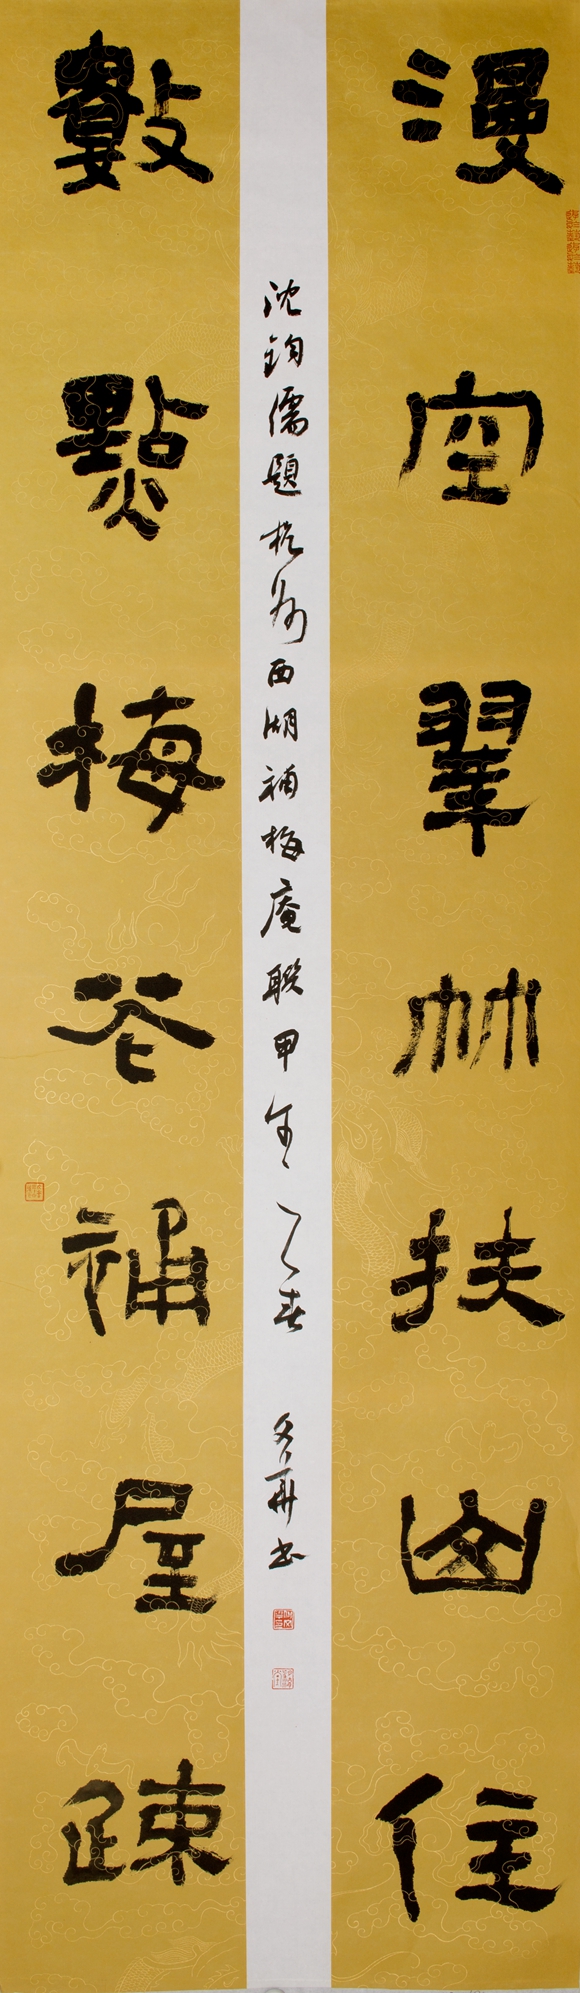 漫空翠竹扶山住
沈鈞儒題杭州西湖補梅庵聯甲午之春 書
數點梅花補屋疎